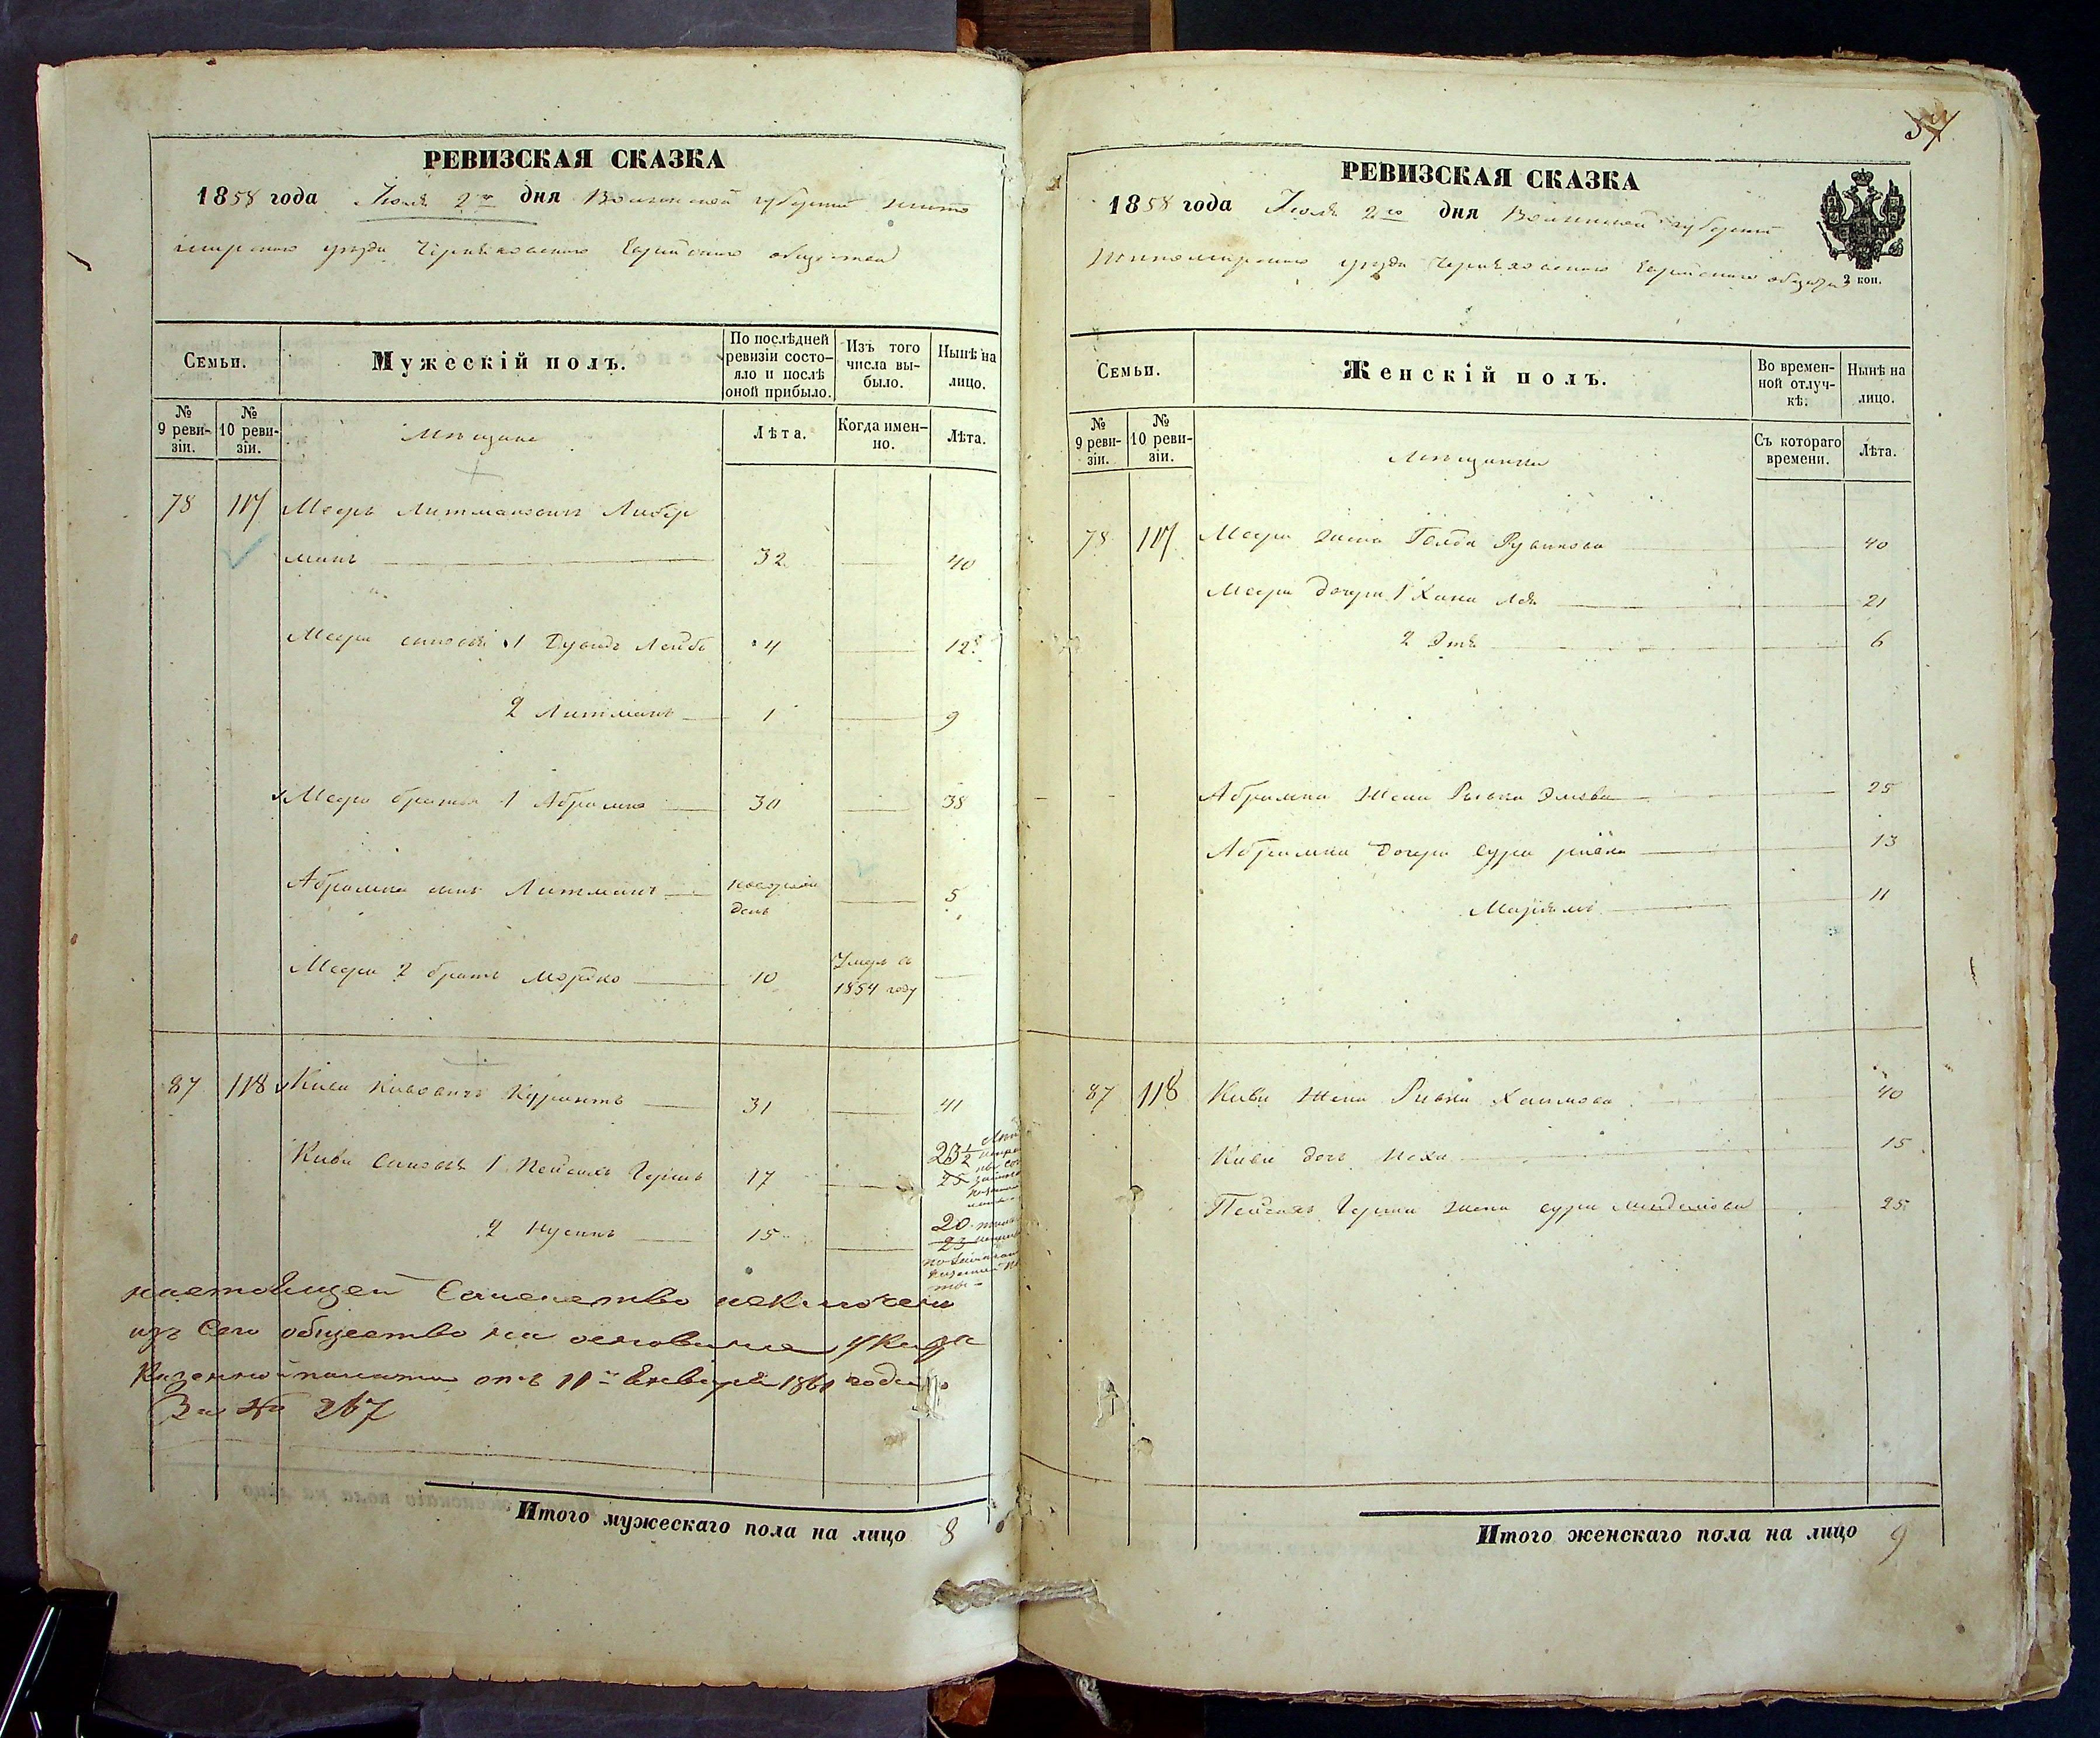 РЕВИЗСКАЯ СКАЗКА
1858 года Июля 2го дня Волынской губернии Жито
мирского уезда Черняховского Еврейского общества
Семьи.
Мужескій полъ.
По послѣдней
ревизіи состо-
яло и послѣ
оной прибыло.
Изъ того
числа вы-
было.
Нынѣ на
лицо.
№
9 реви-
зіи.
№
10 реви-
зіи.
Мещане
Лѣта.
Когда имен-
но.
Лѣта.
78 117 Мееръ Литманович Либер
манъ 32 40
Меера сыновья 1 Дувидъ Лейбъ 4 12
2 Литманъ 1 9
Меера братья 1 Абрамко 30 38
Абрамка сынъ Литманъ 5
Меера 2 братъ Мордко 10 Умеръ въ
1854 году
87 118 Кива Кивовичъ Курантъ 31 41
Кивы сыновья 1 Пейсахъ Герша 17 23½
25
2 Нусинъ 15 20
23
настоящей Семейство исключено
изъ Сего общества на основании Указа
Казенной палаты отъ 11го Января 1861 года
За № 267
Итого мужескаго пола на лицо 8
РЕВИЗСКАЯ СКАЗКА
1858 года Июля 2го дня Волынской губернии
Житомирского уезда Черняховского Еврейского общества
2 коп.
Семьи.
Женскій полъ.
Во времен-
ной отлуч-
кѣ.
Нынѣ на
лицо.
№
9 реви-
зіи.
№
10 реви-
зіи.
Мещанки
Съ котораго
времени.
Лѣта.
78 117 Меера жена Голда Рувинова 40
Меера дочери 1 Хана Лея 21
2 Этя 6
Абрамка жена Рывка 25
Абрамка дочери Сура 13
Марьямъ 11
87 118 Кивы жена Ривка Хаимова 40
Кивы дочь 15
Пейсахъ Герша жена Сура 25
Итого женскаго пола на лицо 9